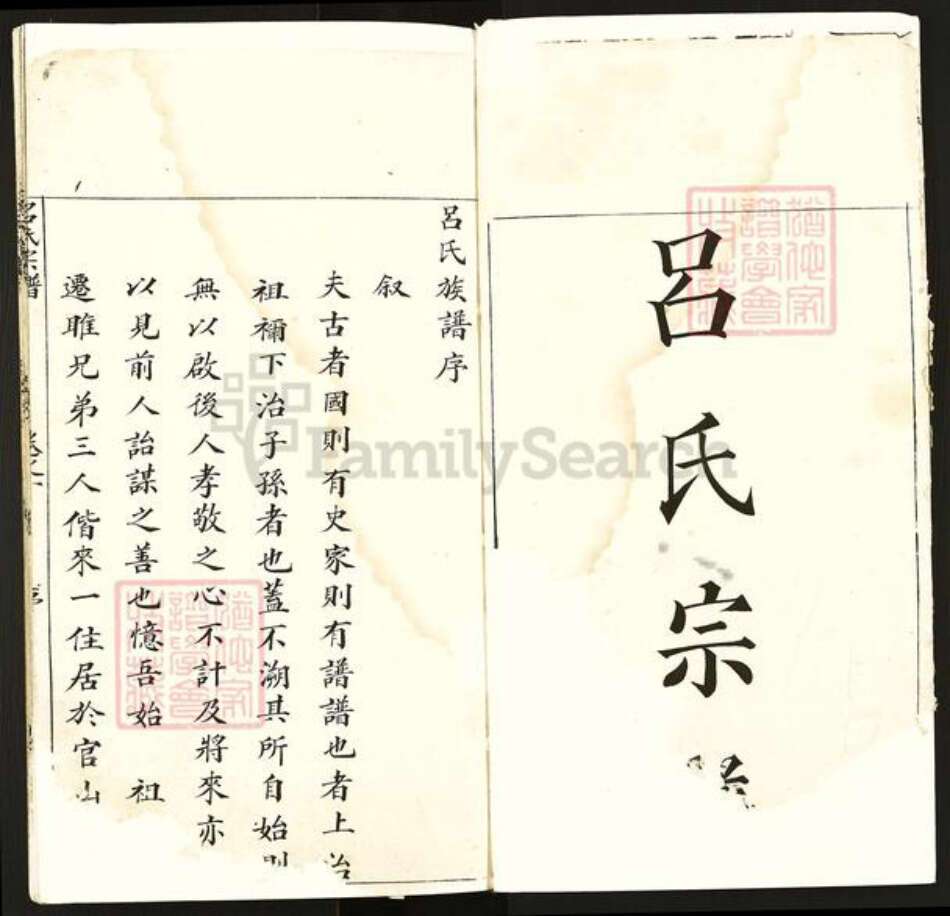 呂氏宗
呂氏族譜序
叙
夫古者國則有史家則有譜譜也者上治
祖禰下治子孫者也蓋不溯其所自始則
無以啟後人孝敬之心不計及將來亦
以見前人詒謀之善也憶吾始 祖
遷睢兄弟三人偕來一住居於官山
呂氏宗譜
FamilySearch